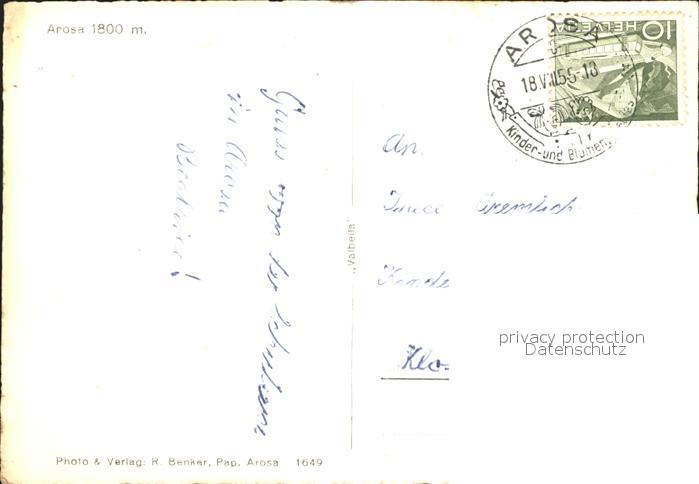 Arosa 1800 m.
HELVETIA
10
AROSA
18.VIII.55-18
Kinder- und Blumen
Gruss von der
in Arosa
Beatrice!
"Valbella"
An.
Kinde
Klo-
privacy protection
Datenschutz
Photo & Verlag: R. Benker, Pap. Arosa 1649